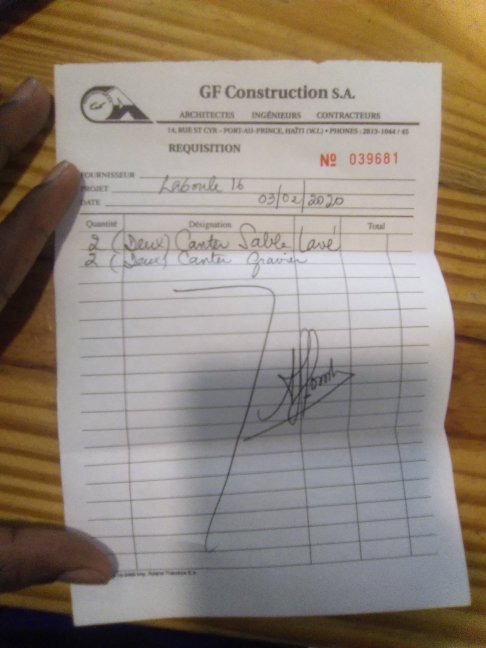 GF Construction S.A.
ARCHITECTES INGÉNIEURS CONTRACTEURS
14, RUE ST CYR - PORT-AU-PRINCE, HAÏTI (W.I.) • PHONES : 2813-1044 / 45
REQUISITION
Nº 039681
FOURNISSEUR
PROJET Laboule 16
DATE 03/02/2020
Quantité Désignation Total
2 (Deux) Canter Sable Lavé
2 (Deux) Canter gravier